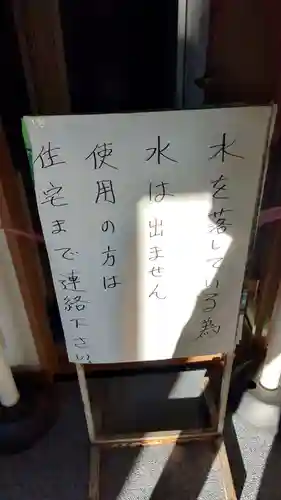 水を落している為
水は出ません
使用の方は
住宅まで連絡下さい